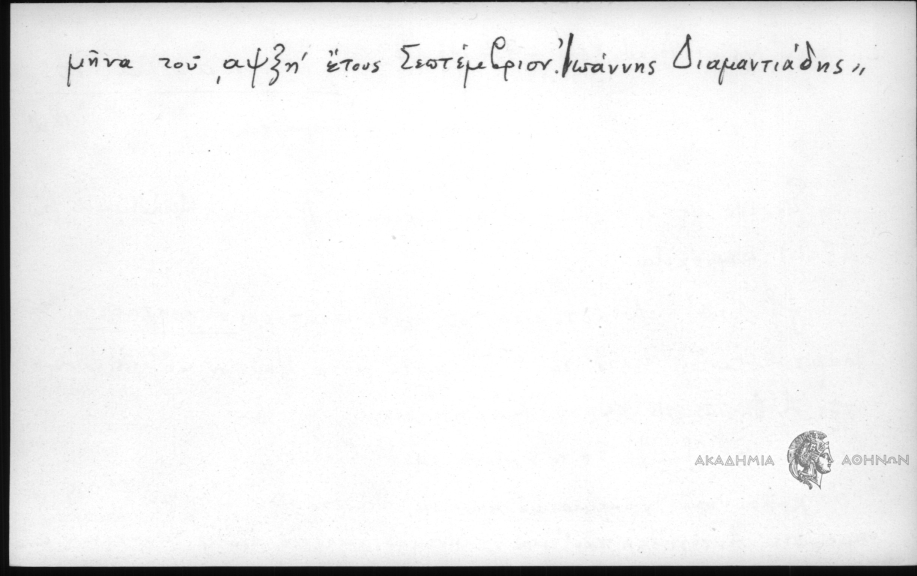 μῆνα τοῦ ͵αψξη' ἔτους Σεπτέμβριον. Ἰωάννης Διαμαντιάδης„
ΑΚΑΔΗΜΙΑ ΑΘΗΝΩΝ